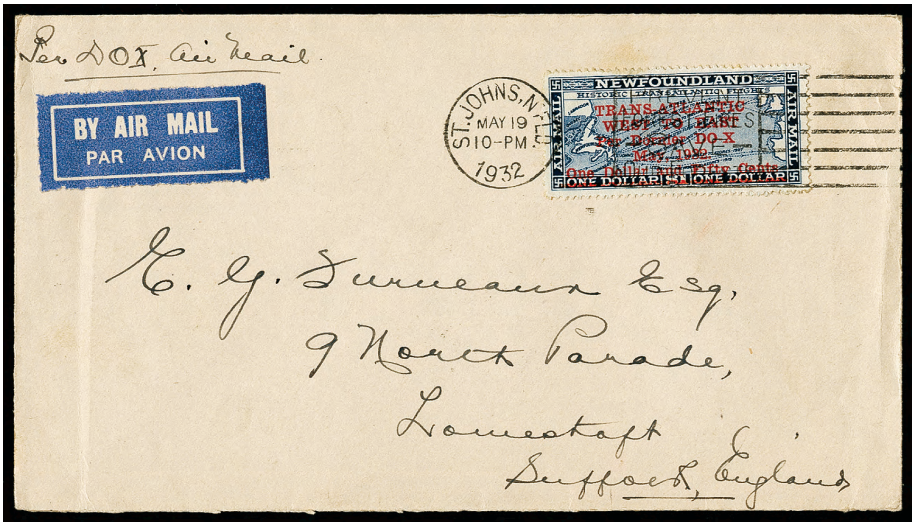 Per DOX, Air Mail.
BY AIR MAIL
PAR AVION
ST. JOHN'S, NFLD
MAY 19
10-PM
1932
NEWFOUNDLAND
HISTORIC TRANSATLANTIC FLIGHTS
AIR MAIL
AIR MAIL
TRANS-ATLANTIC
WEST TO EAST
Per Dornier DO-X
May, 1932.
One Dollar and Fifty Cents
ONE DOLLAR $1 ONE DOLLAR
E. G. Furneaux Esq.
9 North Parade,
Lowestoft
Suffolk, England